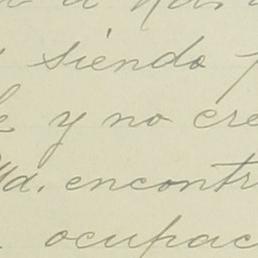 siendo
y no cre
Ud. encontr
ocupac